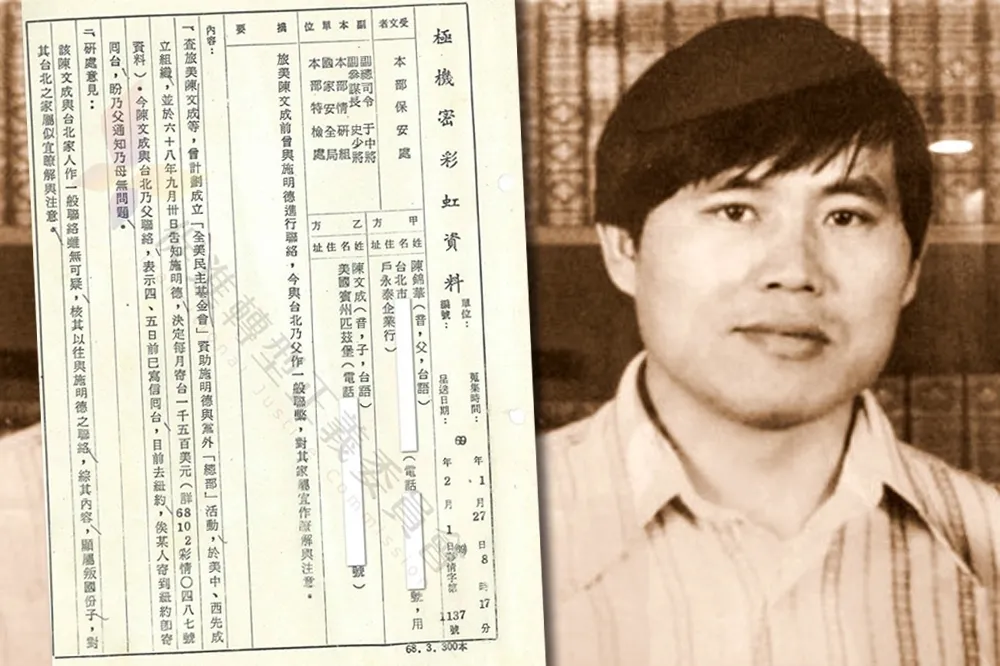 極機密彩虹資料
單位：
編號：
蒐集時間：69年1月27日8時17分
呈送日期：69年2月1日 彩情字第1137號
受文者
本部保安處
副本單位
副總司令 于中將
副參謀長 史少將
本部情研組
國家安全局
本部特檢處
甲方
姓名
住址
陳錦華（音，父，台語）
台北市（電話 號，用戶永泰企業行）
乙方
姓名
住址
陳文成（音，子，台語）
美國賓州匹茲堡（電話 號）
摘要
旅美陳文成前曾與施明德進行聯絡，今與台北乃父作一般聯繫，對其家屬宜作瞭解與注意。
內容：
一、查旅美陳文成等，曾計劃成立「全美民主基金會」資助施明德與黨外「總部」活動，於美中、西先成
立組織，並於六十八年九月卅日告知施明德，決定每月寄台一千五百美元（詳68102彩情〇四八七號
資料）。今陳文成與台北乃父聯絡，表示四、五日前已寫信囘台，目前去紐約，俟某人寄到紐約卽寄
囘台，盼乃父通知乃母無問題。
二、研處意見：
該陳文成與台北家人作一般聯絡雖無可疑，核其以往與施明德之聯絡，綜其內容，顯屬叛國份子，對
其台北之家屬似宜瞭解與注意。
68.3.300本
促進轉型正義委員會
Transitional Justice Commission